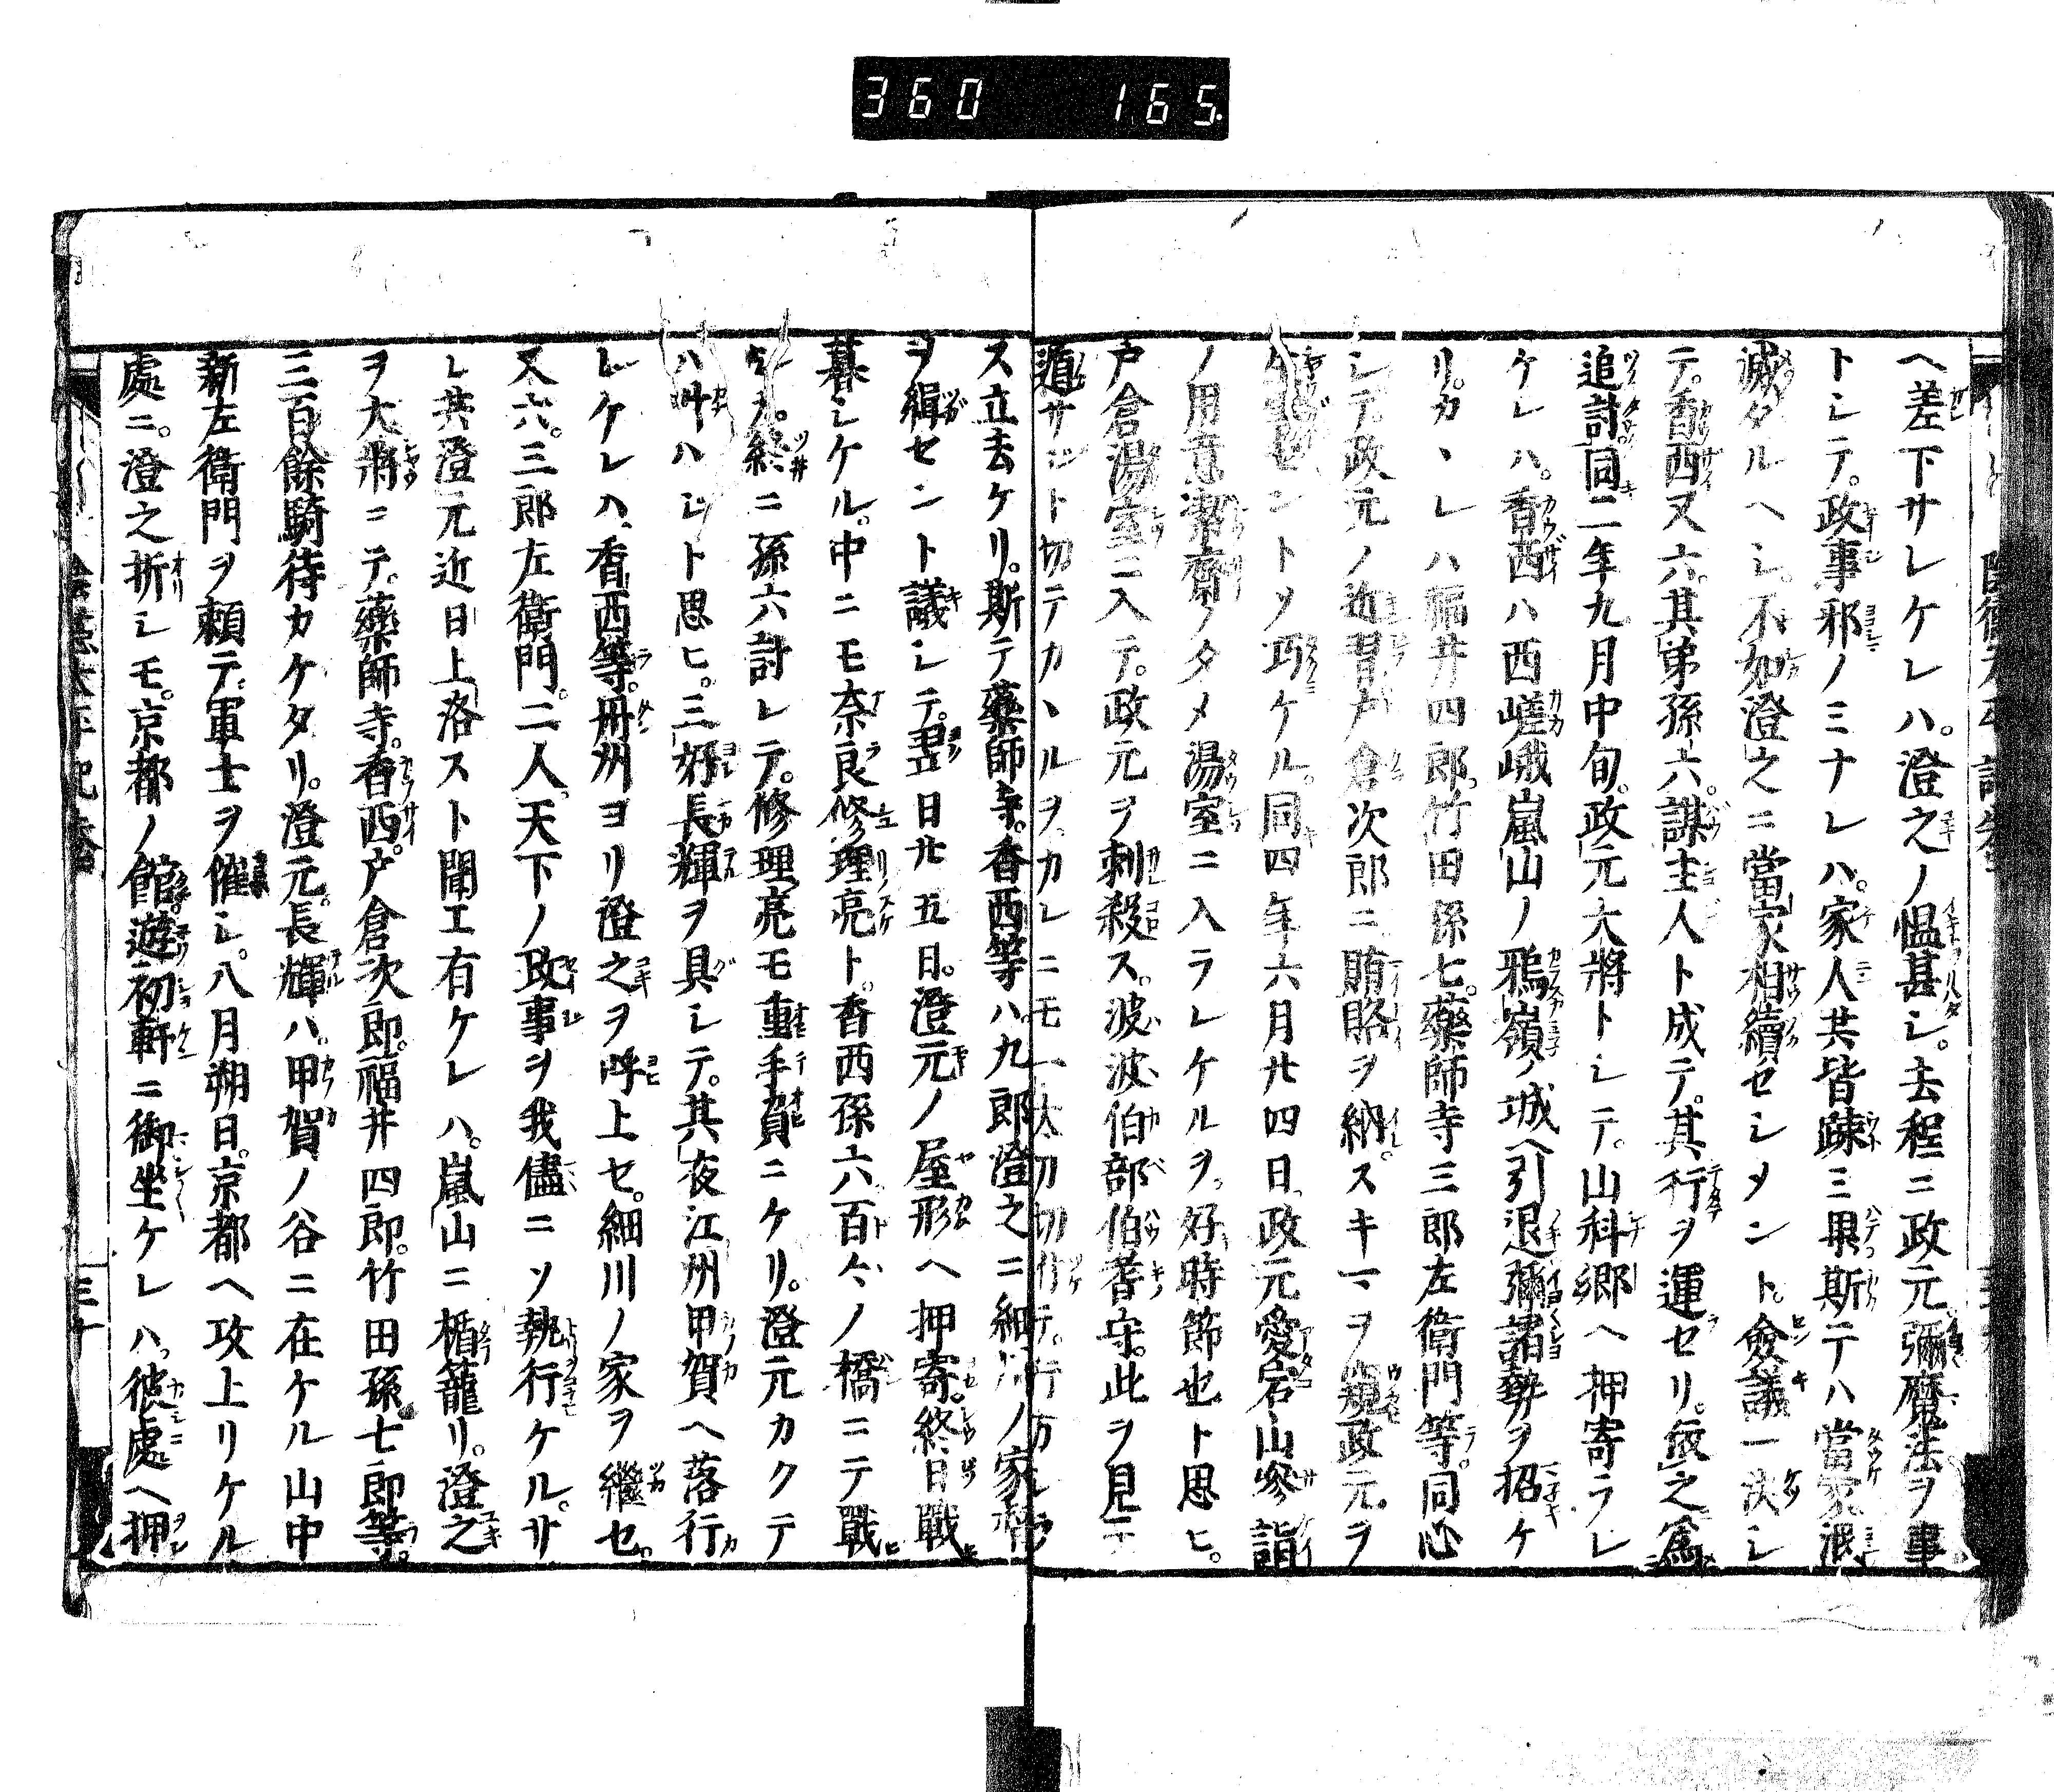 360 165
ヘ差下サレケレハ。澄之ノ慍甚シ。去程ニ政元。彌魔法ヲ事
トシテ。政事邪ノミナレハ。家人共皆疎ミ果斯テハ當家泯
滅タルヘシ。不如澄之ニ當家相續セシメント。僉議一決シ
テ。香西又六。其弟孫六。謀主人ト成テ。其行ヲ運セリ。敵之爲
追討同二年九月中旬。政元大將トシテ。山科郷ヘ押寄ラレ
ケレハ。香西ハ西嵯峨嵐山ノ鵶嶺ノ城ヘ引退彌諸勢ヲ招ケ
リ。カヽレハ福井四郎。竹田孫七。藥師寺三郎左衛門等。同心
シテ。政元ノ近習戸倉次郎ニ賄賂ヲ納。スキマヲ窺政元。ヲ
セントソ巧ケル。同四年六月廿四日。政元愛宕山參詣
ノ用意潔齋ノタメ湯室ニ入ラレケルヲ。好時節也ト思ヒ。
戸倉湯室ニ入テ。政元ヲ刺殺ス。波波伯部伯耆守。此ヲ見テ
遁サシト切テカヽルヲ。カレニモ一太刀切付テ。行方シラ
ス立去ケリ。斯テ藥師寺。香西等ハ。九郎澄之ニ細川ノ家務
ヲ緝セント議シテ。翌日廿五日。澄元ノ屋形ヘ押寄。終日戰
暮シケル。中ニモ奈良修理亮ト。香西孫六。百々ノ橋ニテ戰
終ニ孫六討レテ。修理亮モ重手負ニケリ。澄元カクテ
ハ叶ハシト思ヒ。三好長輝ヲ具シテ。其夜江州甲賀ヘ落行
レケレハ。香西等。丹州ヨリ澄之ヲ呼上セ。細川ノ家ヲ繼セ。
又六。三郎左衛門。二人。天下ノ政事ヲ我儘ニソ執行ケル。サ
レ共澄元近日上洛スト聞エ有ケレハ。嵐山ニ楯籠リ。澄之
ヲ大將ニテ。藥師寺。香西。戸倉次郎。福井四郎。竹田孫七郎等。
三百餘騎待カケタリ。澄元。長輝ハ。甲賀ノ谷ニ在ケル山中
新左衛門ヲ頼テ。軍士ヲ催シ。八月朔日。京都ヘ攻上リケル
處ニ。澄之折シモ。京都ノ館。遊初軒ニ御坐ケレハ。彼處ヘ押
三十